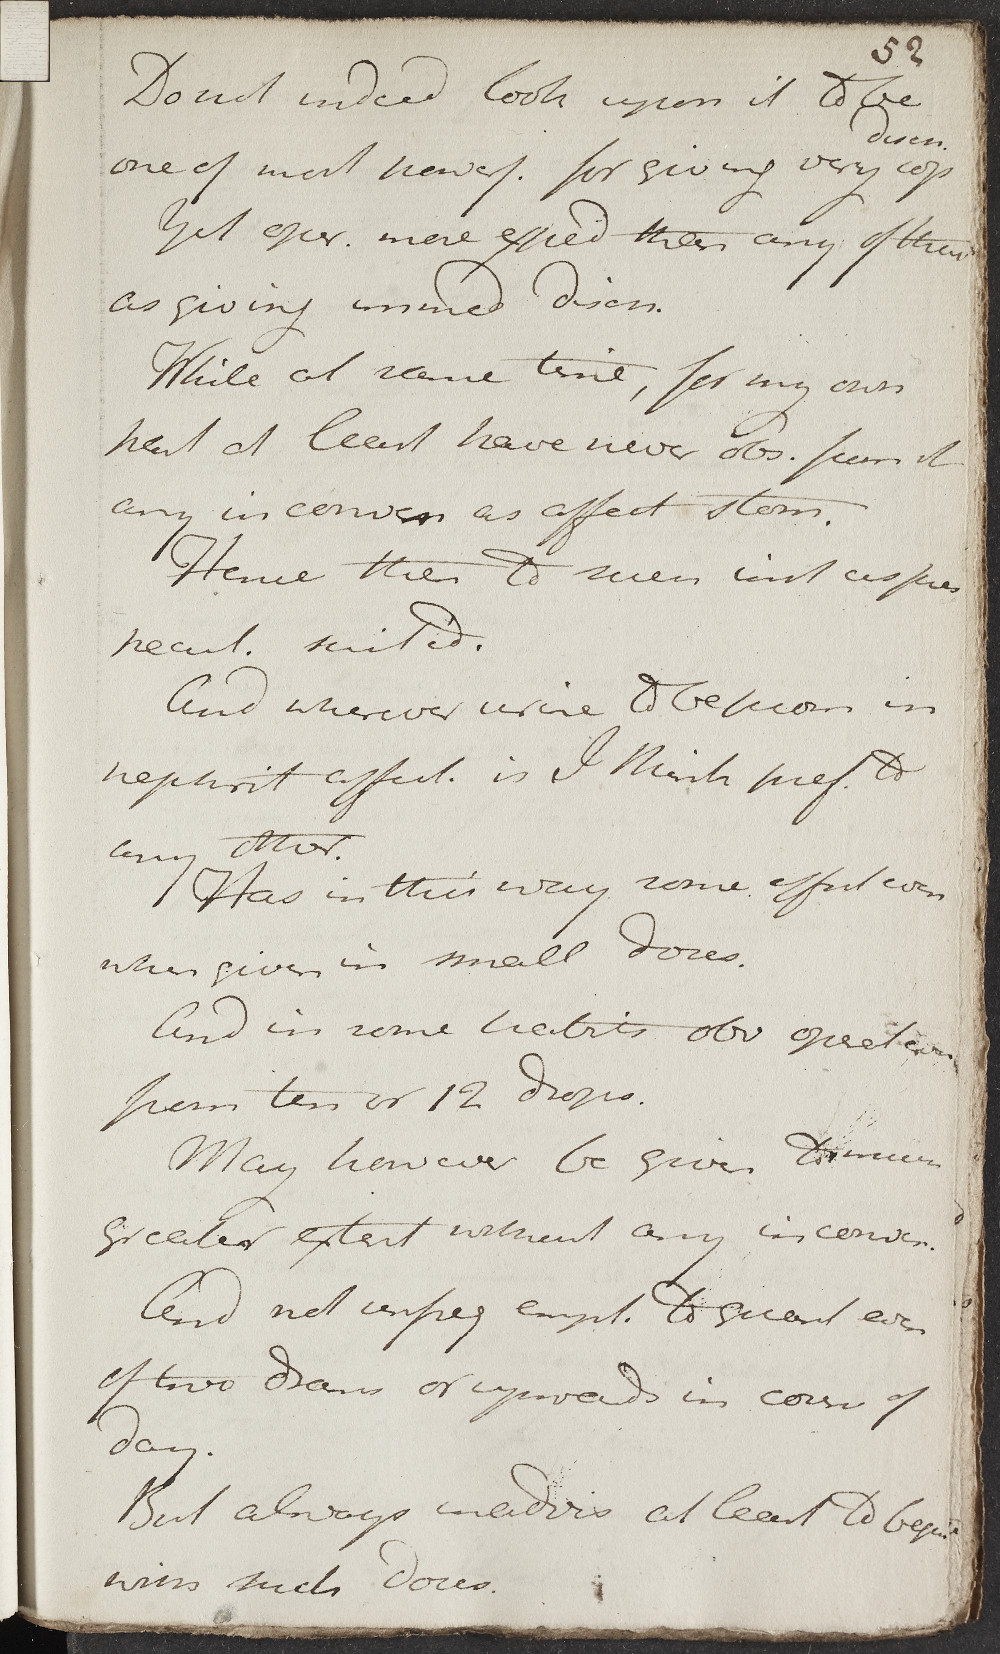 52
Do not indeed look upon it to be
discn.
one of most powerf. for giving very cop
Yet oper. more exped then any of them
as giving immed discn.
While at same time, for my own
part at least have never obs. from it
any inconven as affect stom.
Hence then to men inst as pres
pecul. suited.
And wherever urine to be prom in
nephrit affect. is I think pref. to
any other.
Has in this way some effect even
when given in small doses.
And in some habits obv operat even
from ten or 12 drops.
May however be given to much
greater extent without any inconven.
And not unfreq empl. to quant even
of two drams or upwards in cours of
day.
But always inadvis at least to begin
with such doses.